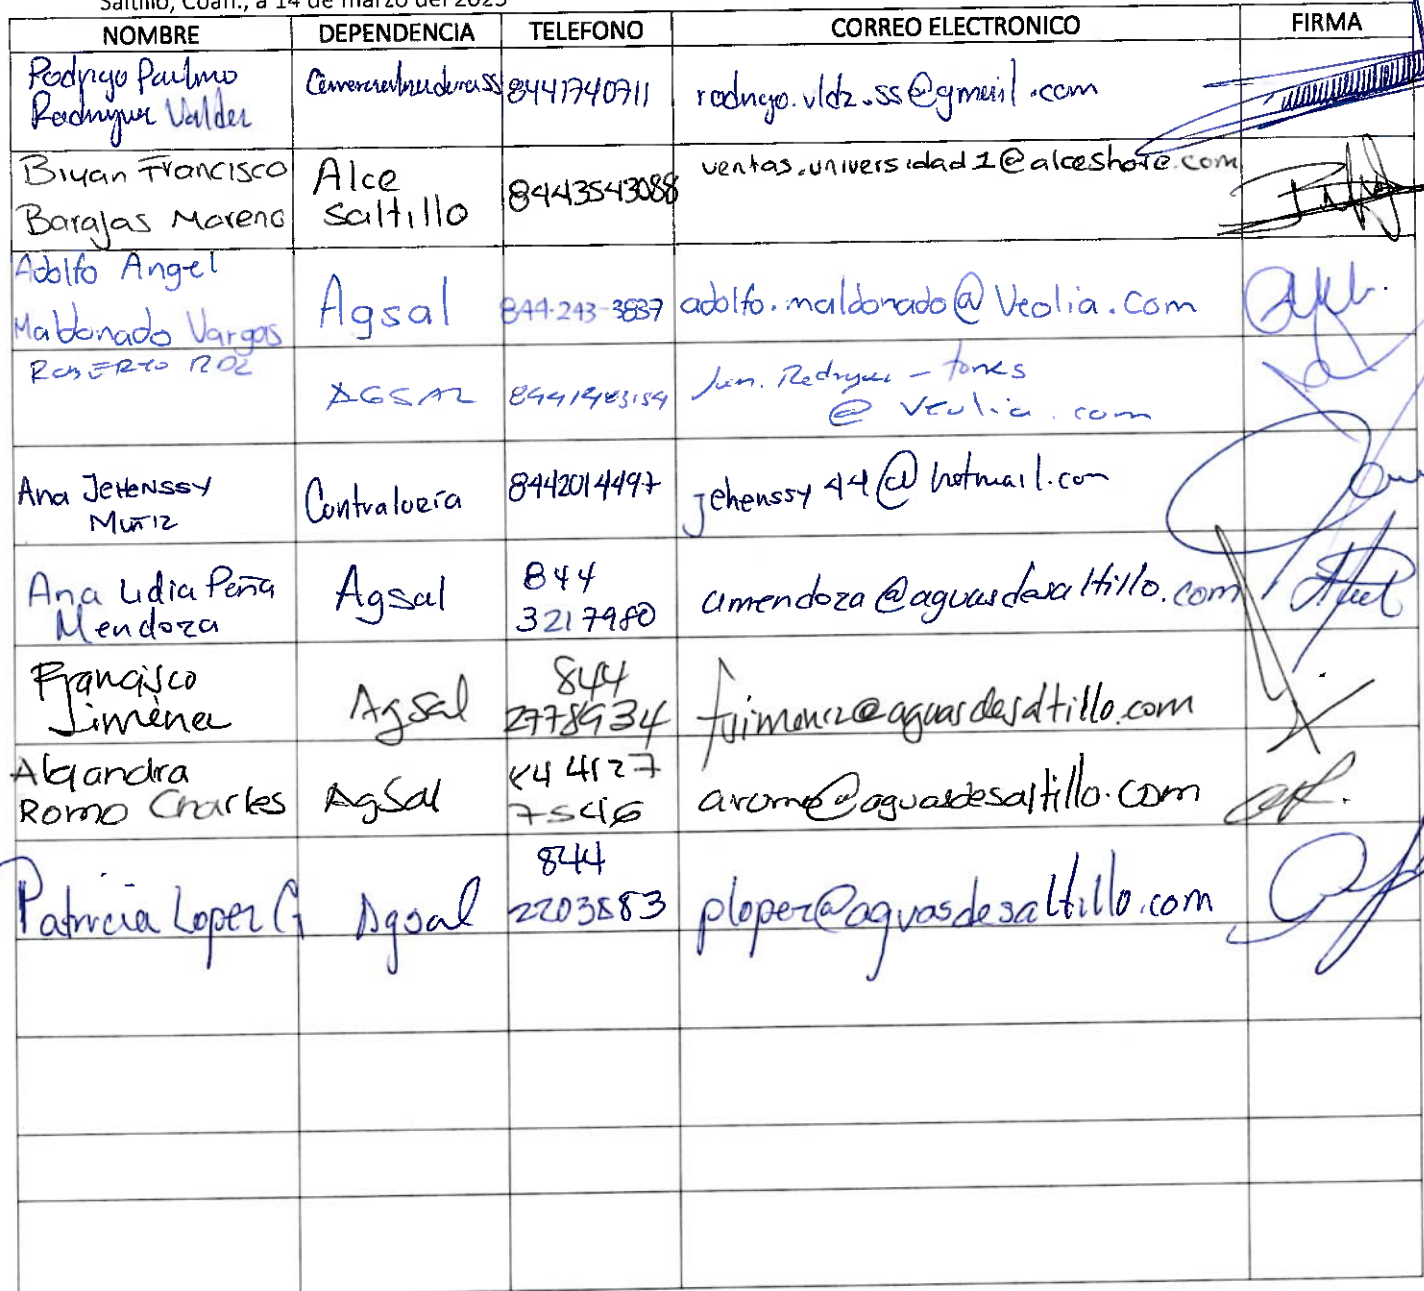 Saltillo, Coah., a 14 de marzo del 2025
NOMBRE DEPENDENCIA TELEFONO CORREO ELECTRONICO FIRMA
Rodrigo Paulino
Rodriguez Valdez
8441740711 rodrigo.vldz.ss@gmail.com
Bryan Francisco
Barajas Moreno
Alce
Saltillo
8443543088 ventas.universidad1@alceshore.com
Adolfo Angel
Maldonado Vargas
Agsal 844-243-3837 adolfo.maldonado@Veolia.com
ROBERTO RDZ
AGSAL
@ Veolia.com
Ana JEHENSSY
MUÑIZ
Contraloría 8442014497 jehenssy44@hotmail.com
Ana Lidia Peña
Mendoza
Agsal 844
3217980
amendoza@aguasdesaltillo.com
Francisco
Jiménez
Agsal 844
2778934
fjimenez@aguasdesaltillo.com
Alejandra
Romo Charles
AgSal 844127
7546
aromo@aguasdesaltillo.com
Patricia Lopez G
Agsal 844
2203883
plopez@aguasdesaltillo.com